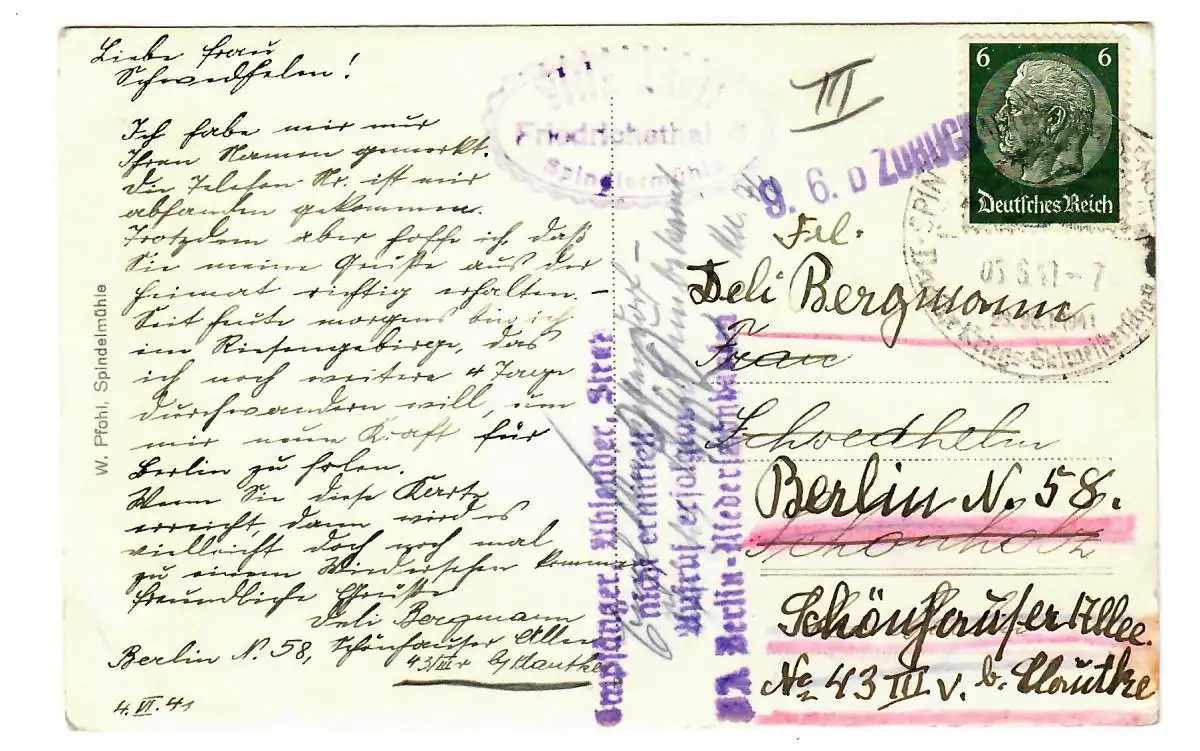 Liebe Frau
Schwedhelm!
Ich habe mir nur
Ihren Namen gemerkt.
Die Telefon Nr. ist mir
abhanden gekommen.
Trotzdem aber hoffe ich, daß
Sie meine Grüße aus der
Heimat richtig erhalten. –
Seit heute morgens bin ich
im Riesengebirge, das
ich noch weitere 4 Tage
durchwandern will, um
mir neue Kraft für
Berlin zu holen.
Wenn Sie diese Karte
erreicht, dann wird es
vielleicht doch noch mal
zu einem Wiedersehen kommen
Freundliche Grüße
Deli Bergmann
Berlin N. 58, Schönhauser Allee
43III v b/Mautke
4. VI. 41
W. Pfohl, Spindelmühle
Friedrichsthal
Spindlermühle
III
9. 6. D ZURÜCK
6 6
Deutsches Reich
05.6.41 – 7
Frl.
Deli Bergmann
Frau
Schwedhelm
Berlin N. 58.
Schönholz
Schönhauser Allee.
No 43 III v. b. Mautke
Empfänger, Absender, Straße
nicht ermittelt
Aufruf erfolglos
Berlin-Niederschönhausen